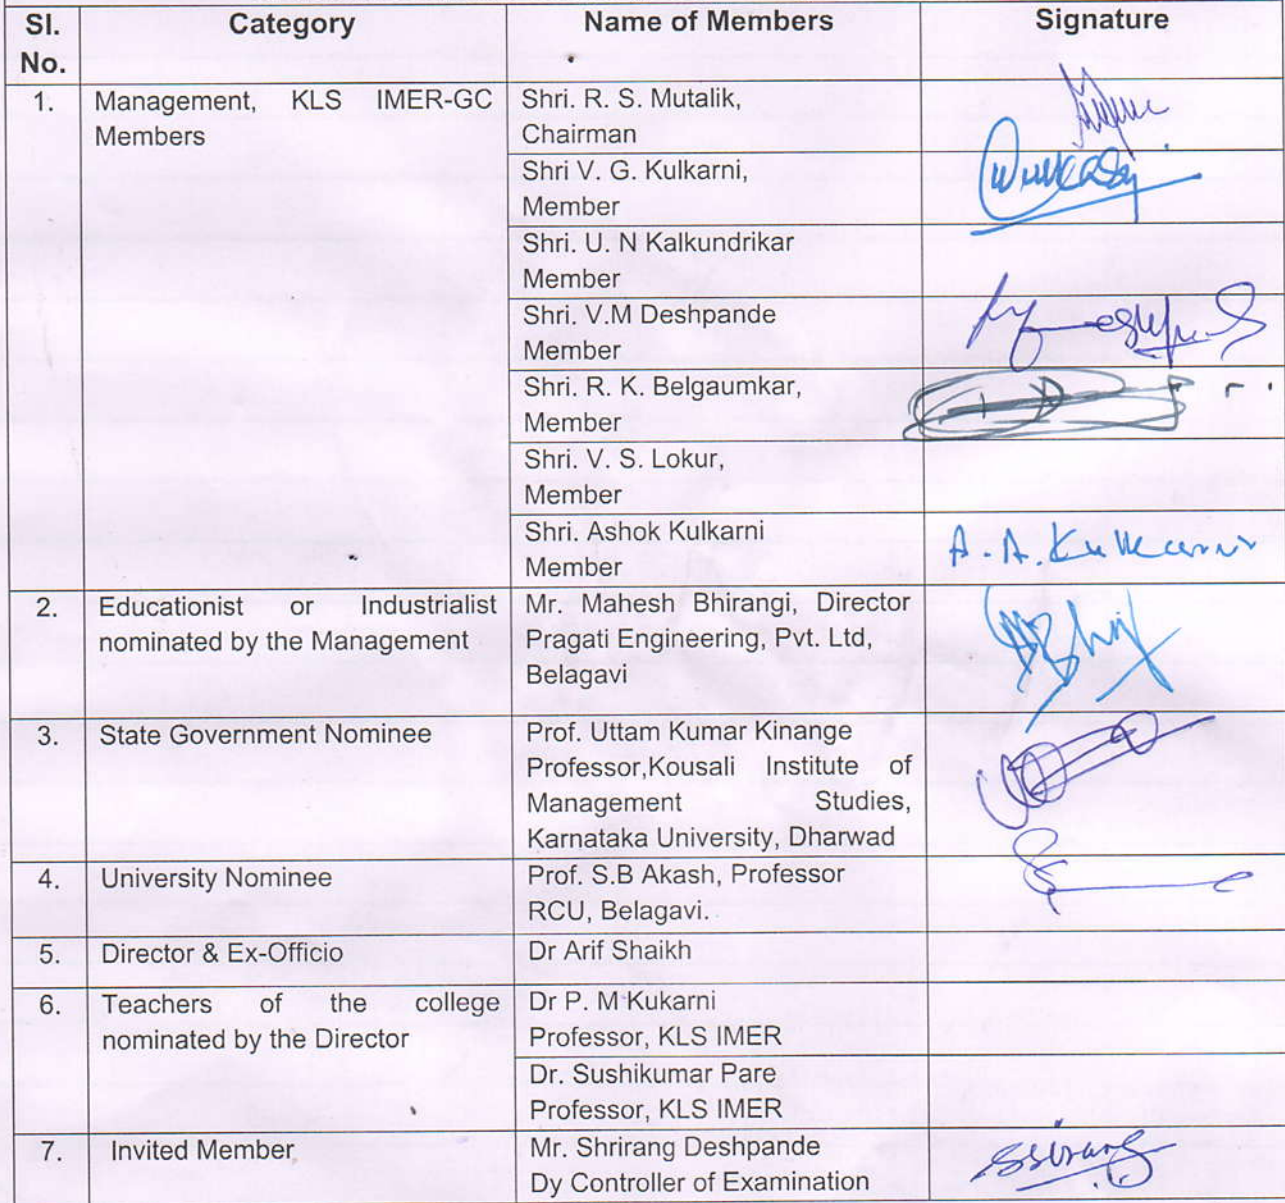 Sl. No. Category Name of Members Signature
1. Management, KLS IMER-GC Members
Shri. R. S. Mutalik,
Chairman
Shri V. G. Kulkarni,
Member
Shri. U. N Kalkundrikar
Member
Shri. V.M Deshpande
Member
Shri. R. K. Belgaumkar,
Member
Shri. V. S. Lokur,
Member
Shri. Ashok Kulkarni
Member
A. A. Kulkarni
2. Educationist or Industrialist
nominated by the Management
Mr. Mahesh Bhirangi, Director
Pragati Engineering, Pvt. Ltd,
Belagavi
3. State Government Nominee
Prof. Uttam Kumar Kinange
Professor,Kousali Institute of
Management Studies,
Karnataka University, Dharwad
4. University Nominee
Prof. S.B Akash, Professor
RCU, Belagavi.
5. Director & Ex-Officio
Dr Arif Shaikh
6. Teachers of the college
nominated by the Director
Dr P. M Kukarni
Professor, KLS IMER
Dr. Sushikumar Pare
Professor, KLS IMER
7. Invited Member
Mr. Shrirang Deshpande
Dy Controller of Examination